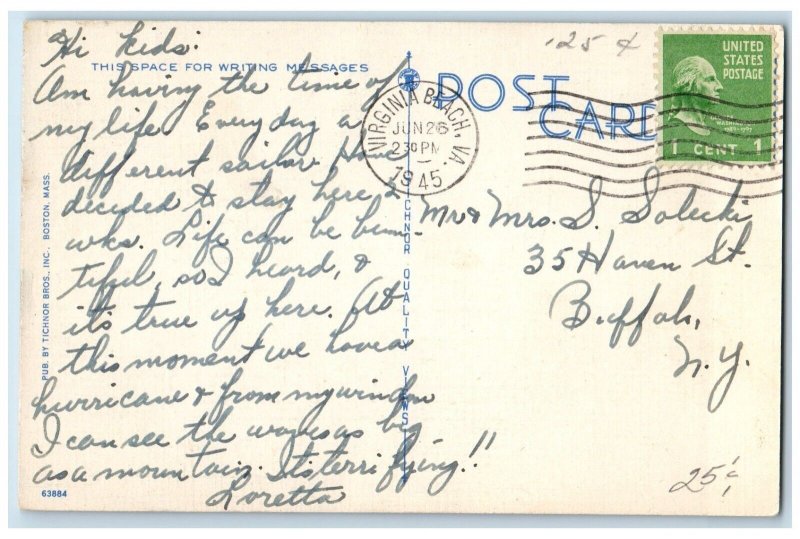 Hi kids:
THIS SPACE FOR WRITING MESSAGES
Am having the time of
my life. Every day a
different sailor. Have
decided to stay here 2
wks. Life can be beau-
tiful, so I heard, &
it's true up here. At
this moment we have a
hurricane & from my window
I can see the waves as big
as a mountain. It's terrifying!!
Loretta
63884
PUB. BY TICHNOR BROS., INC., BOSTON, MASS.
TICHNOR QUALITY VIEWS
POST
CARD
VIRGINIA BEACH, VA.
JUN 26
2 30 PM
1945
.25 ¢
UNITED
STATES
POSTAGE
WASHINGTON
1789-1797
1 CENT 1
Mr & Mrs. S. Solecki
35 Haven St.
Buffalo,
N.Y.
25¢